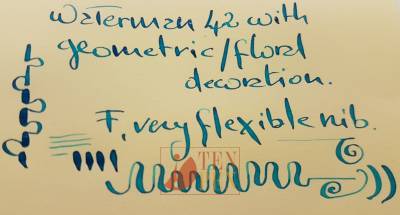 Waterman 42 with
geometric/floral
decortion.
F, very flexible nib.
TEN